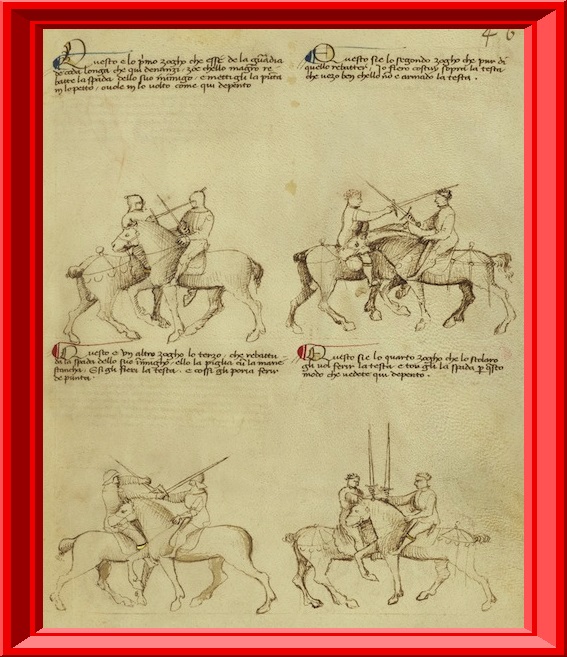 46
Questo e lo pmo zogho che esse de la guardia
de coda longa che qui denanzi . zoe chello magro re=
batte la spada dello suo inimigo . e mettigli la punta
in lo petto . ovole in lo volto come qui depento
Questo sie lo segondo zogho che pur di
quello rebatter . Jo fiero costuy sopra la testa
che vezo ben chello no e armado la testa .
Questo e un altro zogho lo terzo . che rebattu
da la spada dello suo inimigho . ello la piglia cu la mane
stancha . E si gli fieri la testa . e cossi gli poria ferir
de punta .
Questo sie lo quarto zogho che lo scolaro
gli vol ferir la testa e tor gli la spada p questo
modo che vedete qui depento .